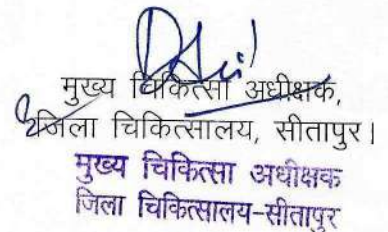 मुख्य चिकित्सा अधीक्षक,
जिला चिकित्सालय, सीतापुर।
मुख्य चिकित्सा अधीक्षक
जिला चिकित्सालय-सीतापुर